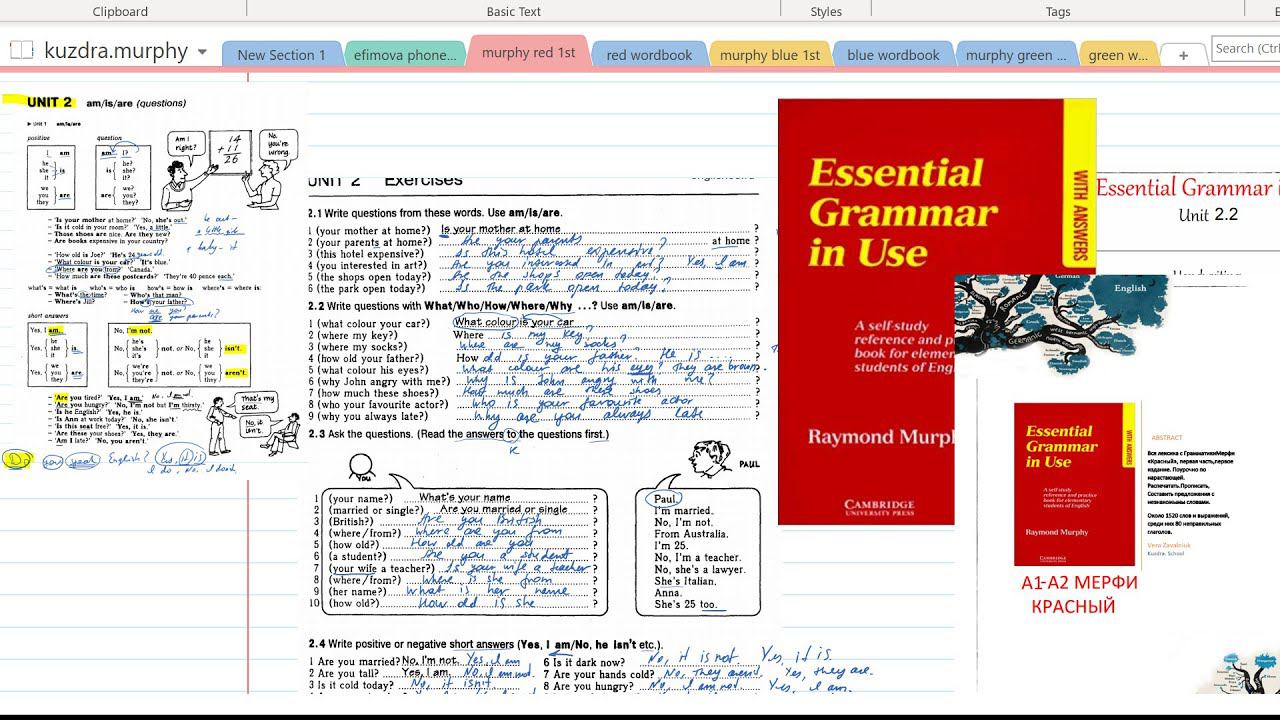 Clipboard
Basic Text
Styles
Tags
kuzdra.murphy
New Section 1
efimova phone...
murphy red 1st
red wordbook
murphy blue 1st
blue wordbook
murphy green ...
green w...
+
Search (Ctrl
UNIT 2 am/is/are (questions)
► Unit 1 am/is/are
positive
question
I am
he
she is
it
we
you are
they
am I?
he?
is she?
it?
we?
are you?
they?
Am I right?
14
+ 11
26
No, you're wrong.
– 'Is your mother at home?' 'No, she's out.'
– 'Is it cold in your room?' 'Yes, a little.'
– Those shoes are nice. Are they new?
– Are books expensive in your country?
– 'How old is Joe?' 'He's 24 years old.'
– 'What colour is your car?' 'It's blue.'
– 'Where are you from?' 'Canada.'
– 'How much are these postcards?' 'They're 40 pence each.'
what's = what is who's = who is how's = how is where's = where is:
– What's the time? – Who's that man?
– Where's Jill? – How's your father?
short answers
Yes, I am.
he
Yes, she is.
it
we
Yes, you are.
they
No, I'm not.
he's
No, she's not. or No, she isn't.
it's
we're
No, you're not. or No, you aren't.
they're
– 'Are you tired?' 'Yes, I am.'
– 'Are you hungry?' 'No, I'm not but I'm thirsty.'
– 'Is he English?' 'Yes, he is.'
– 'Is Ann at work today?' 'No, she isn't.'
– 'Is this seat free?' 'Yes, it is.'
– 'Are these your shoes?' 'Yes, they are.'
– 'Am I late?' 'No, you aren't.'
That's my seat.
No, it isn't.
UNIT 2 Exercises
2.1 Write questions from these words. Use am/is/are.
1 (your mother at home?) Is your mother at home ?
2 (your parents at home?) Are your parents at home ?
3 (this hotel expensive?) Is this hotel expensive ?
4 (you interested in art?) Are you interested in art? Yes, I am. ?
5 (the shops open today?) Are the shops open today? ?
6 (the park open today?) Is the park open today? ?
2.2 Write questions with What/Who/How/Where/Why ...? Use am/is/are.
1 (what colour your car?) What colour is your car ?
2 (where my key?) Where is my key? ?
3 (where my socks?) Where are my socks? ?
4 (how old your father?) How old is your father? He is .... ?
5 (what colour his eyes?) What colour are his eyes? They are brown. ?
6 (why John angry with me?) Why is John angry with me? ?
7 (how much these shoes?) How much are these shoes ?
8 (who your favourite actor?) Who is your favourite actor ?
9 (why you always late?) Why are you always late ?
2.3 Ask the questions. (Read the answers to the questions first.)
YOU
PAUL
1 (your name?) What's your name ?
2 (married or single?) Are you married or single ?
3 (British?) Are you British ?
4 (where/from?) Where are you from ?
5 (how old?) How old are you ?
6 (a student?) Are you a student ?
7 (your wife a teacher?) Is your wife a teacher ?
8 (where/from?) Where is she from ?
9 (her name?) What is her name ?
10 (how old?) How old is she ?
Paul.
I'm married.
No, I'm not.
From Australia.
I'm 25.
No, I'm a teacher.
No, she's a lawyer.
She's Italian.
Anna.
She's 25 too.
2.4 Write positive or negative short answers (Yes, I am/No, he isn't etc.).
1 Are you married? No, I'm not. Yes, I am
2 Are you tall? Yes, I am. No, I am not.
3 Is it cold today? No, it isn't
6 Is it dark now? No, it is not Yes, it is.
7 Are your hands cold? No, they aren't. Yes, they are.
8 Are you hungry? No, I am not. Yes, I am.
Essential
Grammar
in Use
WITH ANSWERS
A self-study
reference and pr
book for elemen
students of Engl
Raymond Murph
CAMBRIDGE
UNIVERSITY PRESS
Essential Grammar i
Unit 2.2
English
Essential
Grammar
in Use
WITH ANSWERS
A self-study
reference and practice
book for elementary
students of English
Raymond Murphy
CAMBRIDGE
ABSTRACT
Вся лексика с ГрамматикиМерфи
«Красный», первая часть,первое
издание. Поурочно по
нарастающей.
Распечатать.Прописать,
Составить предложения с
незнакомыми словами.
Около 1520 слов и выражений,
среди них 80 неправильных
глаголов.
Vera Zavalniuk
Kuzdra. School
А1-А2 МЕРФИ
КРАСНЫЙ